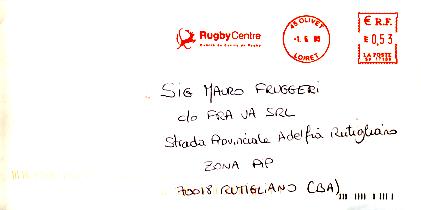 RugbyCentre
45 OLIVET
LOIRET
€ R.F.
€ 0,53
LA POSTE
SIG MAURO FRUGGERI
c/o FRA VA SRL
Strada Provinciale Adelfia Rutigliano
ZONA AP
70018 RUTIGLIANO (BA)